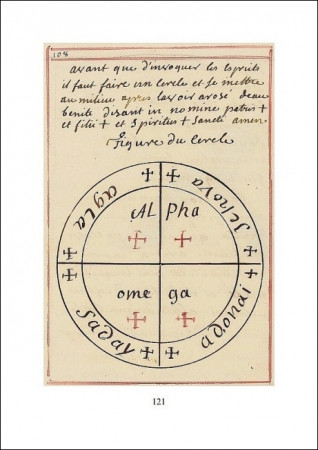 108
avant que d'invoquer les esprits
il faut faire un cercle et se mettre
au milieu apres lavoir arosé deau
benite disant in no mine patris +
et filii + et Spiritus + Sancti amen
Figure du Cercle
agla
Jehova
Alpha
ome ga
Saday
adonai
121